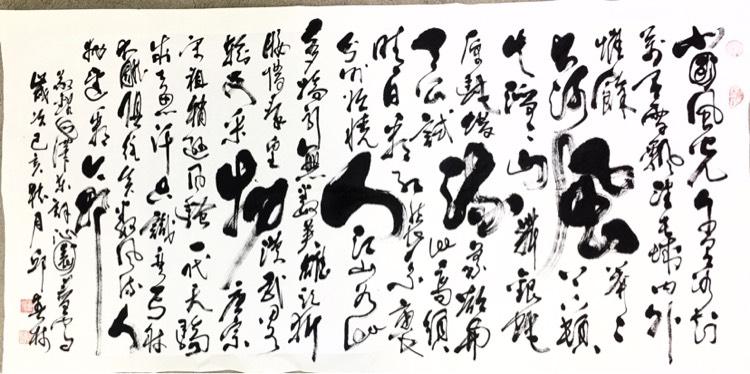 北國風光千里冰封
萬里雪飄望長城內外
惟餘莽莽
大河上下頓
失滔滔山舞銀蛇
原馳蠟象欲與
天公試比高須
晴日看紅裝素裹
分外妖嬈江山如此
多嬌引無數英雄競折
腰惜秦皇漢武略
輸文采唐宗
宋祖稍遜風騷一代天驕
成吉思汗只識彎弓射
大雕俱往矣數風流人
物還看今朝
風流人物
毛澤東詞沁園春雪
歲次己亥秋月邱春林